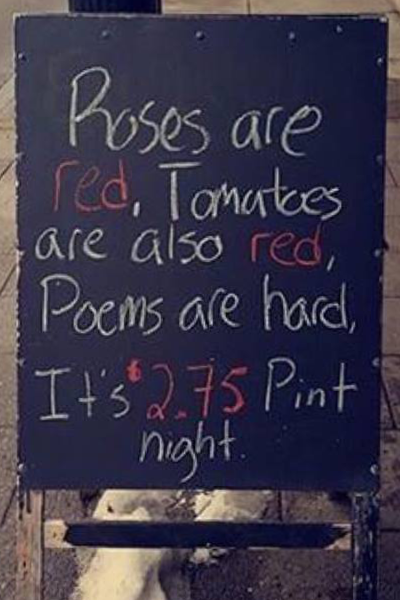 Roses are
red. Tomatoes
are also red,
Poems are hard,
It's $2.75 Pint
night.